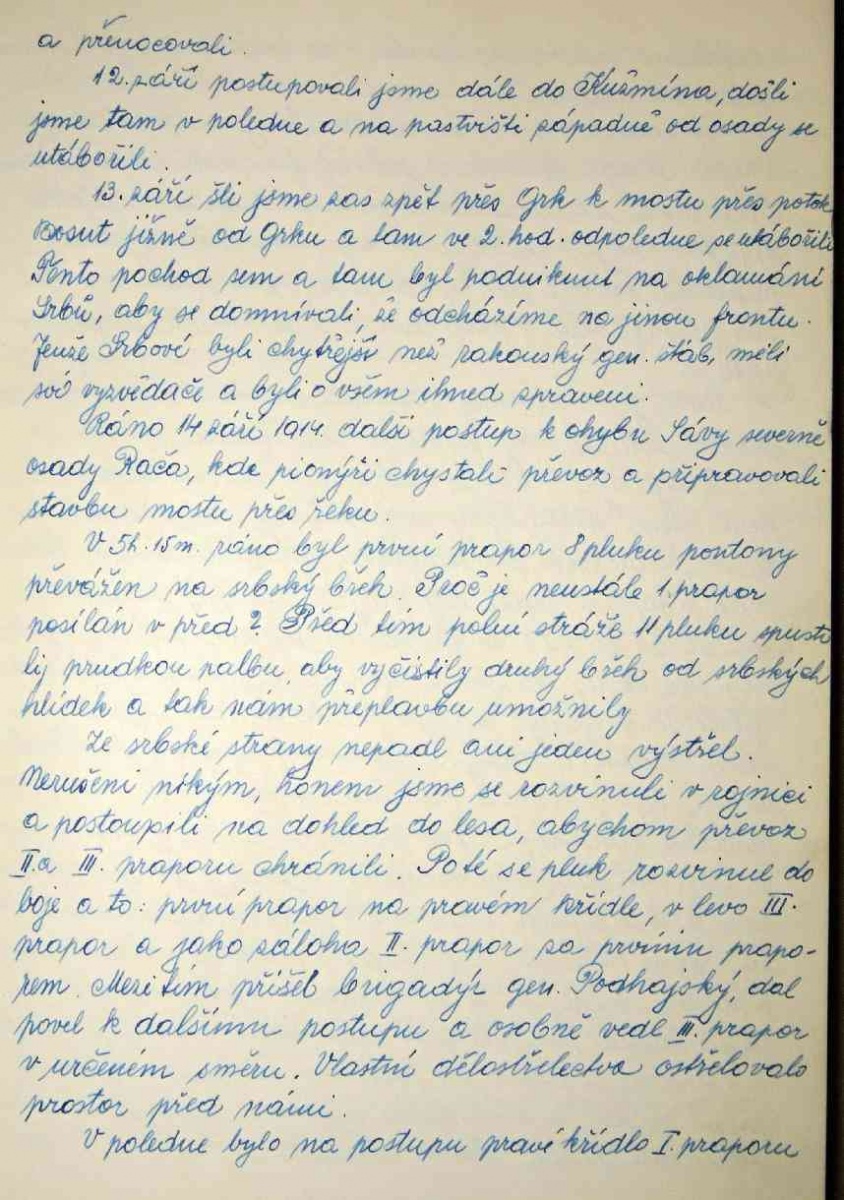 a přenocovali.
12. září postupovali jsme dále do Kuzmína, došli
jsme tam v poledne a na pastvišti západně od osady se
utábořili.
13. září šli jsme zas zpět přes Grk k mostu přes potok
Bosut jižně od Grku a tam ve 2. hod. odpoledne se utábořili
Tento pochod sem a tam byl podniknut na oklamání
Srbů, aby se domnívali, že odcházíme na jinou frontu.
Jenže Srbové byli chytřejší než rakouský gen. štáb, měli
své vyzvědače a byli o všem ihned zpraveni.
Ráno 14 září 1914. další postup k ohybu Sávy severně
osady Rača, kde pionýři chystali převoz a připravovali
stavbu mostu přes řeku.
V 5h. 15m. ráno byl první prapor 8 pluku pontony
převážen na srbský břeh. Proč je neustále 1. prapor
posílán v před? Před tím polní stráže 11 pluku spusti
ly prudkou palbu, aby vyčistily druhý břeh od srbských
hlídek a tak nám přeplavbu umožnily
Ze srbské strany nepadl ani jeden výstřel.
Nerušeni nikým, honem jsme se rozvinuli v rojnici
a postoupili na dohled do lesa, abychom převoz
II. a III. praporu chránili. Poté se pluk rozvinul do
boje a to: první prapor na pravém křídle, v levo III.
prapor a jako záloha II. prapor za prvním prapo-
rem. Mezi tím přišel brigadýr gen. Podhajský, dal
povel k dalšímu postupu a osobně vedl III. prapor
v určeném směru. Vlastní dělostřelectvo ostřelovalo
prostor před námi.
V poledne bylo na postupu pravé křídlo I. praporu